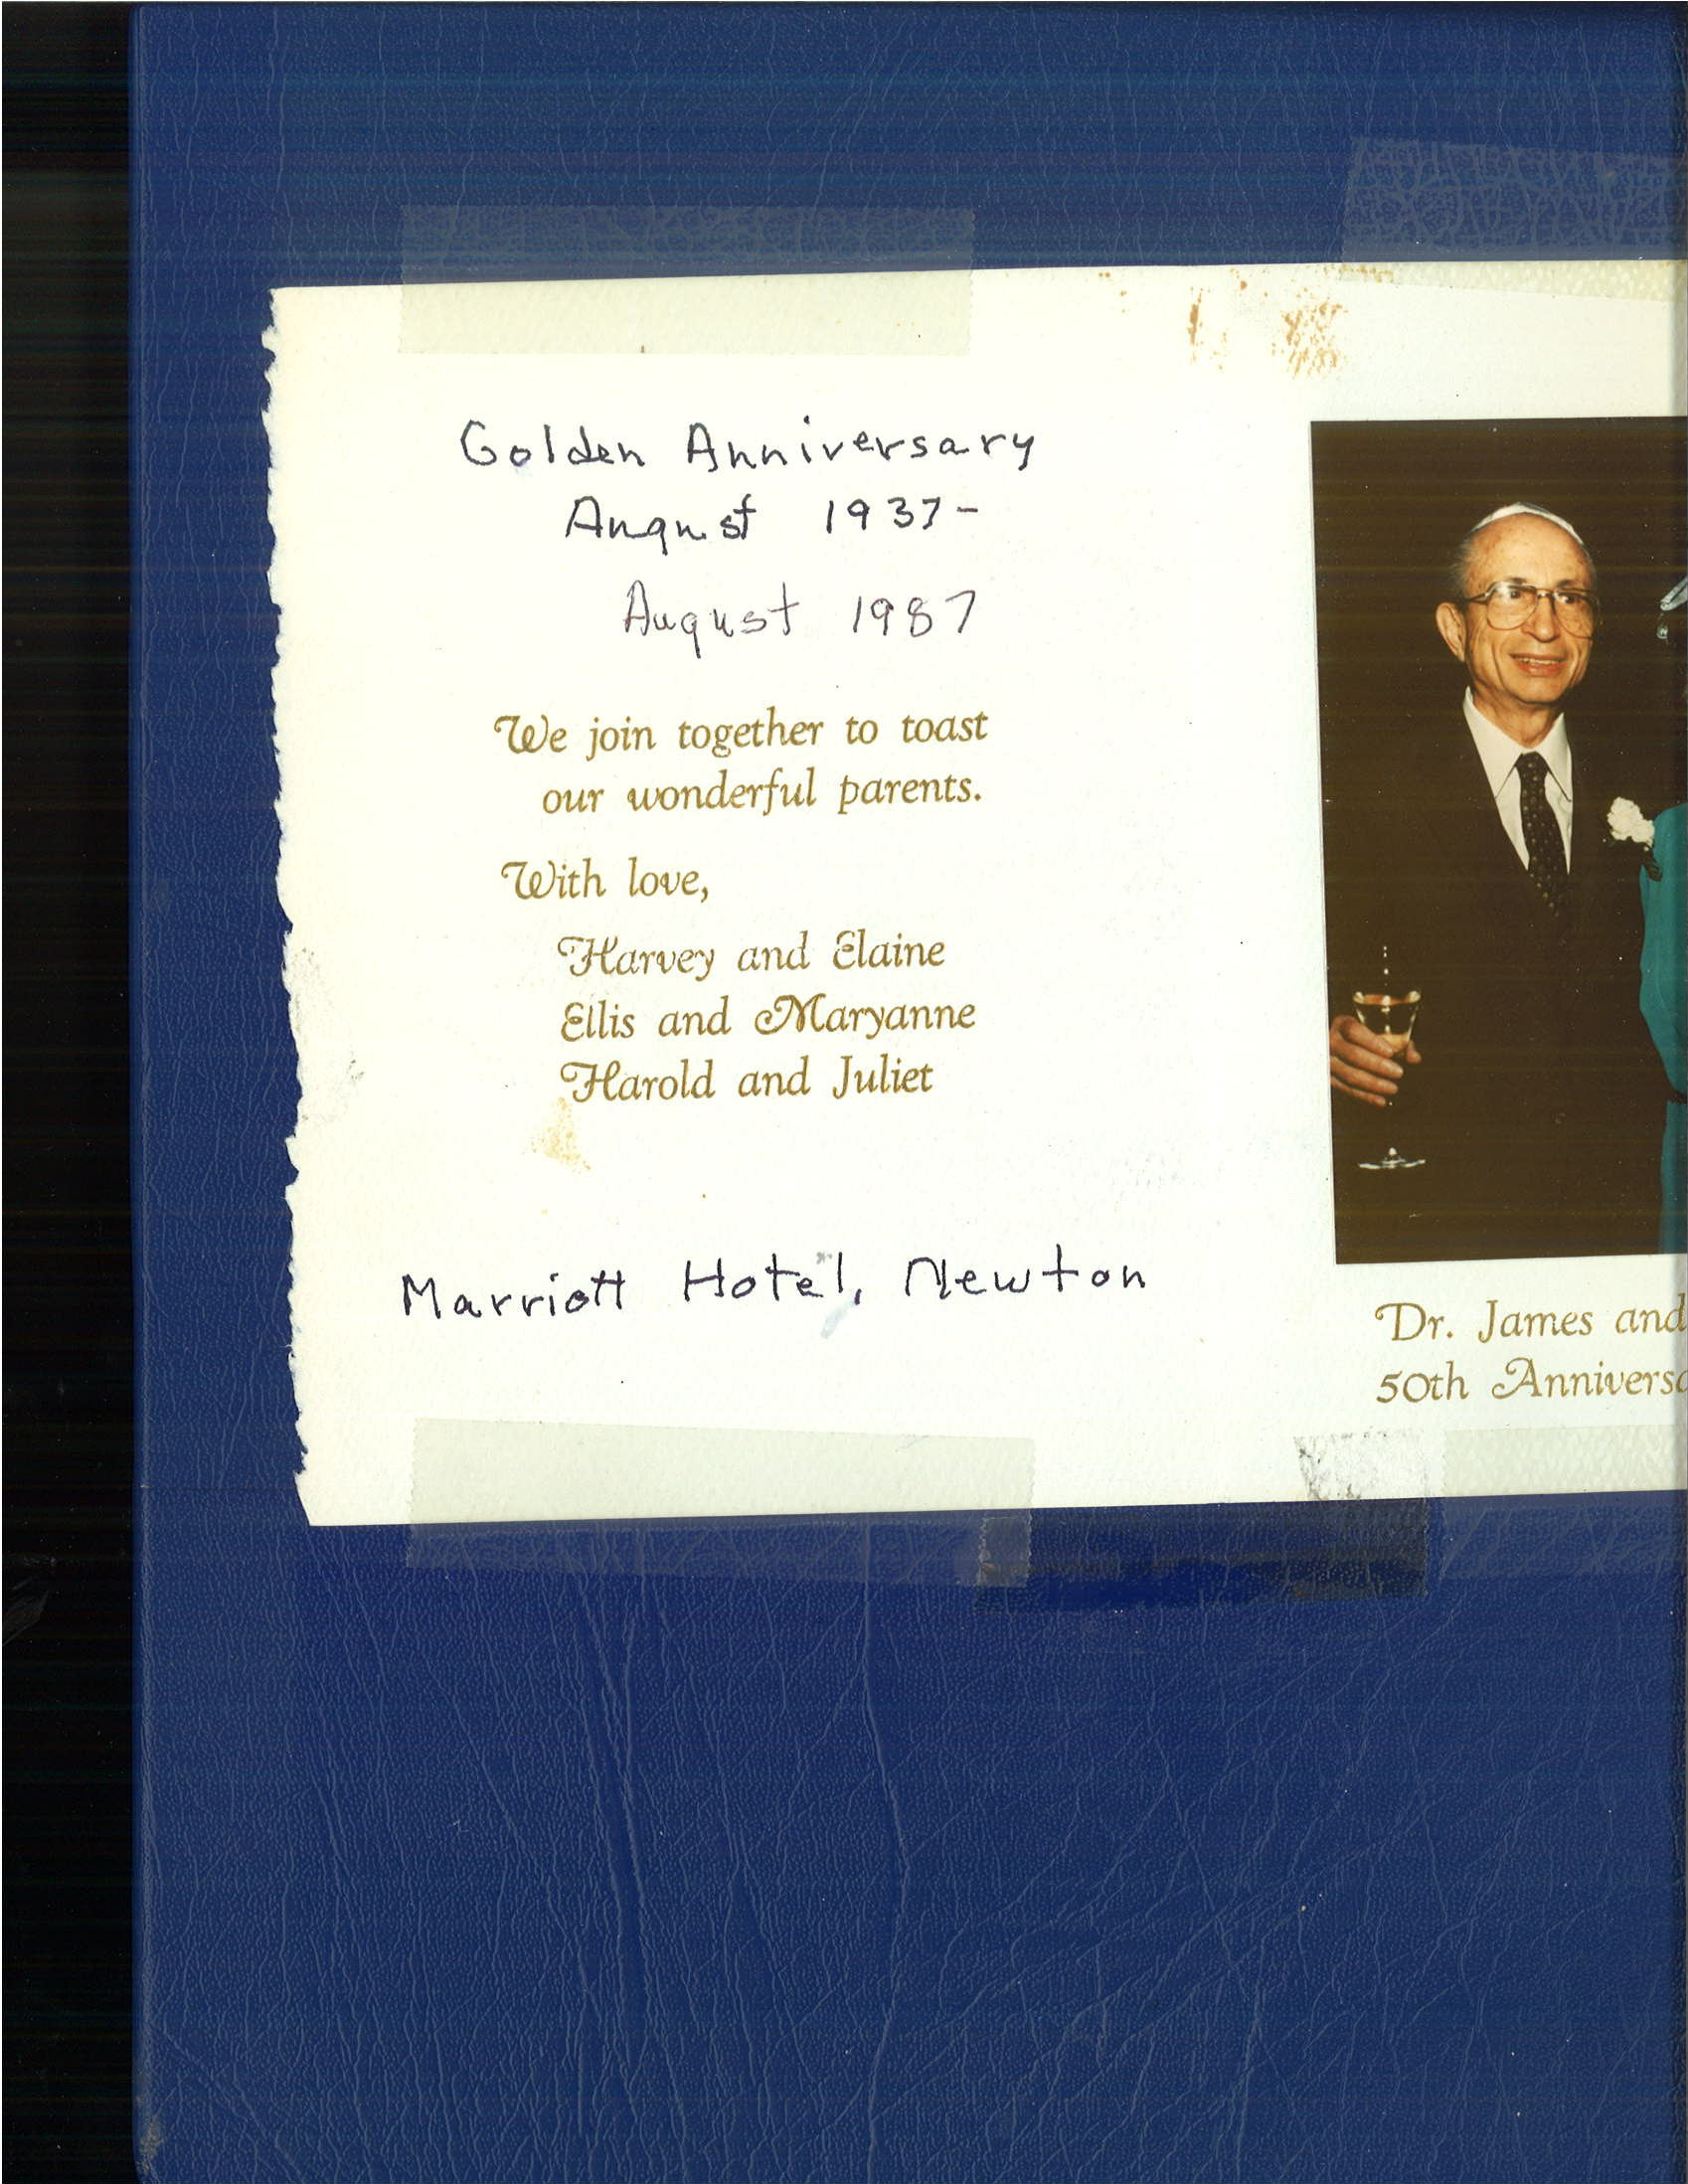 Golden Anniversary
August 1937-
August 1987
We join together to toast
our wonderful parents.
With love,
Harvey and Elaine
Ellis and Maryanne
Harold and Juliet
Marriott Hotel, Newton
Dr. James and
50th Annivers